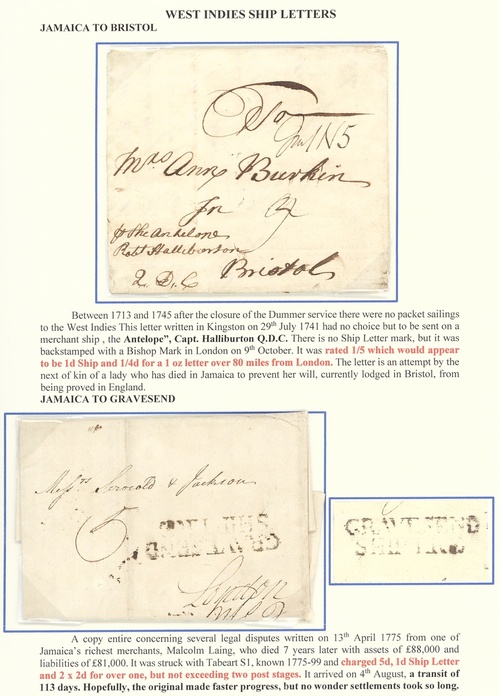 WEST INDIES SHIP LETTERS
JAMAICA TO BRISTOL
To
Mrs Ann Burkin
In
p the Antelope
Robt Halliburton
Q. D. C
Bristol
Between 1713 and 1745 after the closure of the Dummer service there were no packet sailings
to the West Indies This letter written in Kingston on 29th July 1741 had no choice but to be sent on a
merchant ship , the Antelope", Capt. Halliburton Q.D.C. There is no Ship Letter mark, but it was
backstamped with a Bishop Mark in London on 9th October. It was rated 1/5 which would appear
to be 1d Ship and 1/4d for a 1 oz letter over 80 miles from London. The letter is an attempt by the
next of kin of a lady who has died in Jamaica to prevent her will, currently lodged in Bristol, from
being proved in England.
JAMAICA TO GRAVESEND
Messrs & Jackson
5
GRAVESEND
SHIP LRE
London
GRAVESEND
SHIP LRE
A copy entire concerning several legal disputes written on 13th April 1775 from one of
Jamaica's richest merchants, Malcolm Laing, who died 7 years later with assets of £88,000 and
liabilities of £81,000. It was struck with Tabeart S1, known 1775-99 and charged 5d, 1d Ship Letter
and 2 x 2d for over one, but not exceeding two post stages. It arrived on 4th August, a transit of
113 days. Hopefully, the original made faster progress, but no wonder settlements took so long.